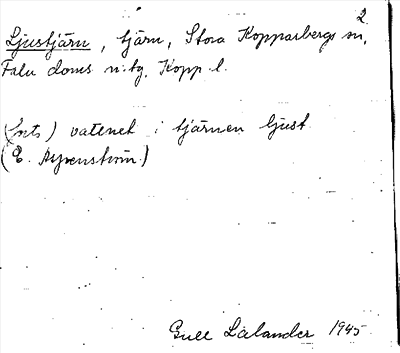 2
Ljustjärn, tjärn, Stora Kopparbergs sn,
Falu doms n. tg. Kopp. l.
vattnet i tjärnen ljust
(E.
Gull Lalander 1945